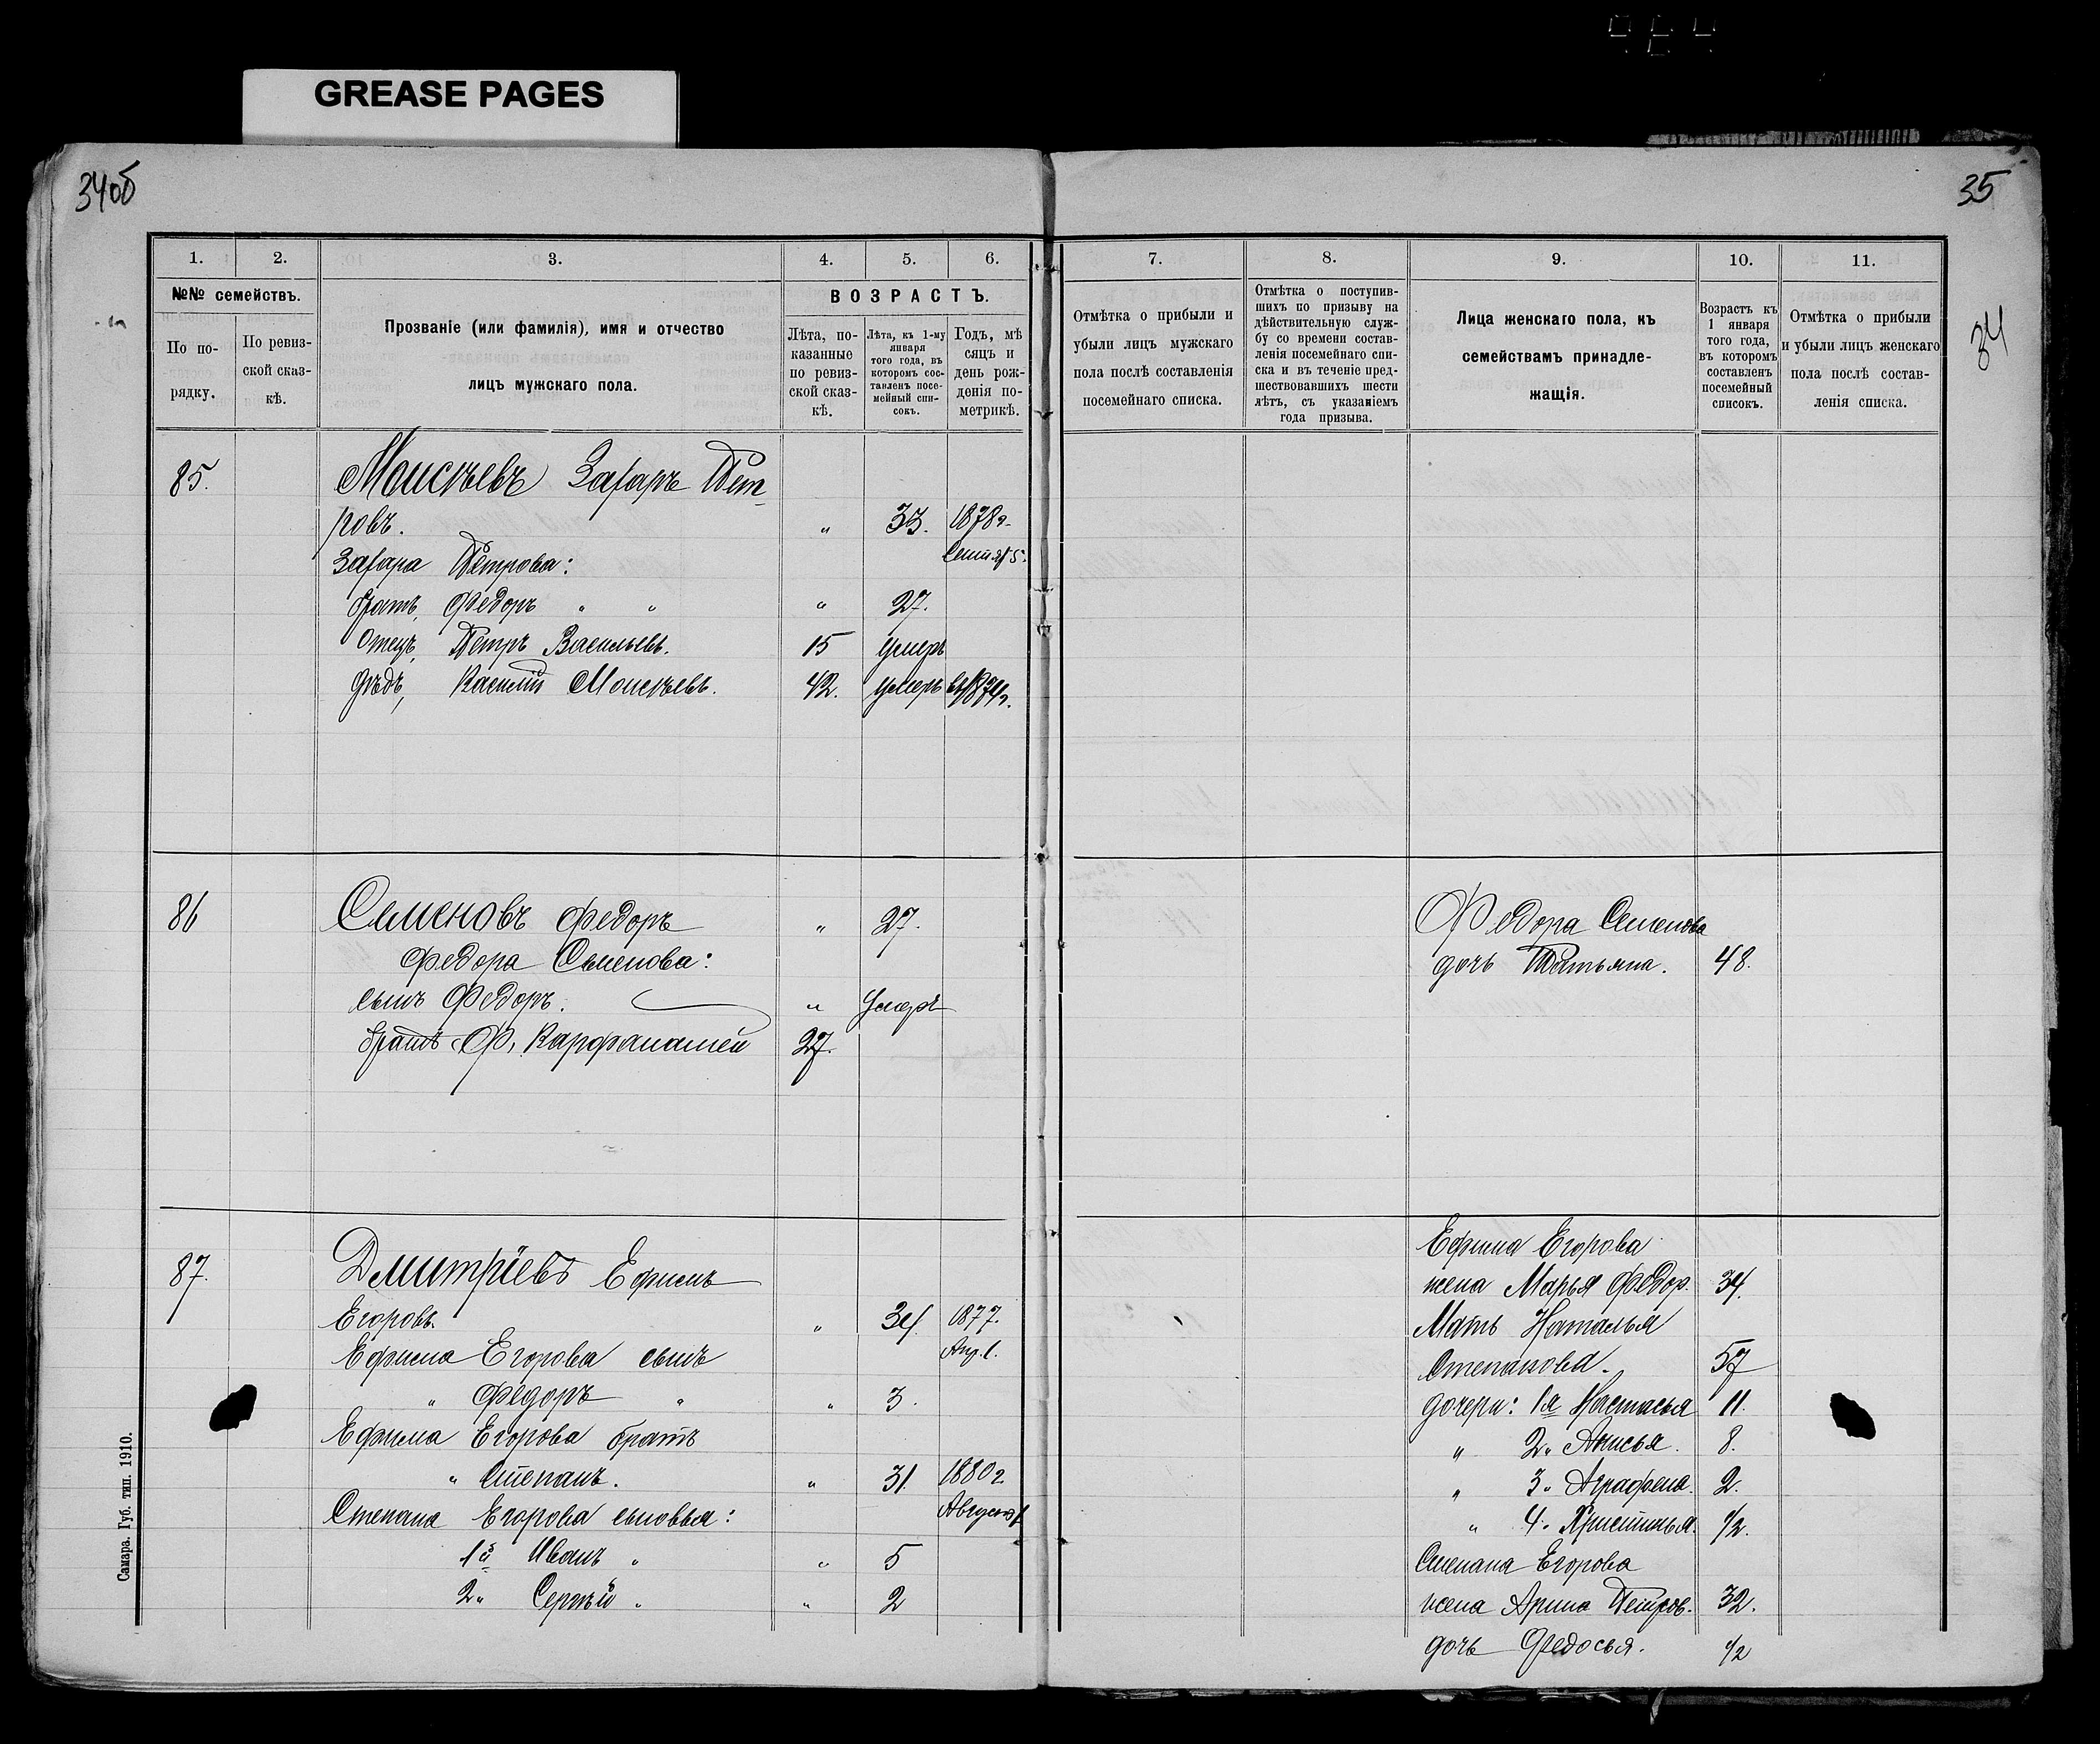 GREASE PAGES
34об
35
34
1.
2.
3.
4.
5.
6.
№№ семействъ.
По по-
рядку.
По ревиз-
ской сказ-
кѣ.
Прозваніе (или фамилія), имя и отчество
лицъ мужскаго пола.
ВОЗРАСТЪ.
Лѣта, по-
казанные
по ревиз-
ской сказ-
кѣ.
Лѣта, къ 1-му
января
того года, въ
которомъ сос-
тавленъ посе-
мейный спи-
сокъ.
Годъ, мѣ
сяцъ и
день рож-
денія по-
метрикѣ.
85.
Моисѣевъ Захаръ Пет-
ровъ. " 33. 1878г.
Захара Петрова: Сентяб 5.
братъ, Федоръ " " " 27.
Отецъ, Петръ Васильевъ. 15 умеръ
Дѣдъ, Василій Моисѣевъ. 42. умеръ въ 1874г.
86 Семеновъ Федоръ " 27.
Федора Семенова:
сынъ Федоръ. " Умеръ
братъ Ф. 27.
87. Дмитріевъ Ефимъ
Егоровъ. " 34. 1877.
Ефима Егорова сынъ Апр. 1.
" Федоръ " " 3.
Ефима Егорова братъ
" Степанъ. " 31. 1880г.
Степана Егорова сыновья: Август 1
1й Иванъ " " 5
2" Сергѣй " " 2
Самара. Губ. тип. 1910.
7.
8.
9.
10.
11.
Отмѣтка о прибыли и
убыли лицъ мужскаго
пола послѣ составленія
посемейнаго списка.
Отмѣтка о поступив-
шихъ по призыву на
дѣйствительную служ-
бу со времени состав-
ленія посемейнаго спи-
ска и въ теченіе пред-
шествовавшихъ шести
лѣтъ, съ указаніемъ
года призыва.
Лица женскаго пола, къ
семействамъ принадле-
жащія.
Возрастъ къ
1 января
того года,
въ которомъ
составленъ
посемейный
списокъ.
Отмѣтка о прибыли
и убыли лицъ женскаго
пола послѣ состав-
ленія списка.
Федора Семенова
дочь Татьяна. 48.
Ефима Егорова
жена Марья Федор. 34.
Мать Наталья
Степанова. 57
дочери: 1я Настасья 11.
" 2" Анисья. 8.
" 3" Аграфена. 2.
" 4" Христинья. 1/2.
Степана Егорова
жена Арина Петров. 32.
дочь Федосья. 1/2